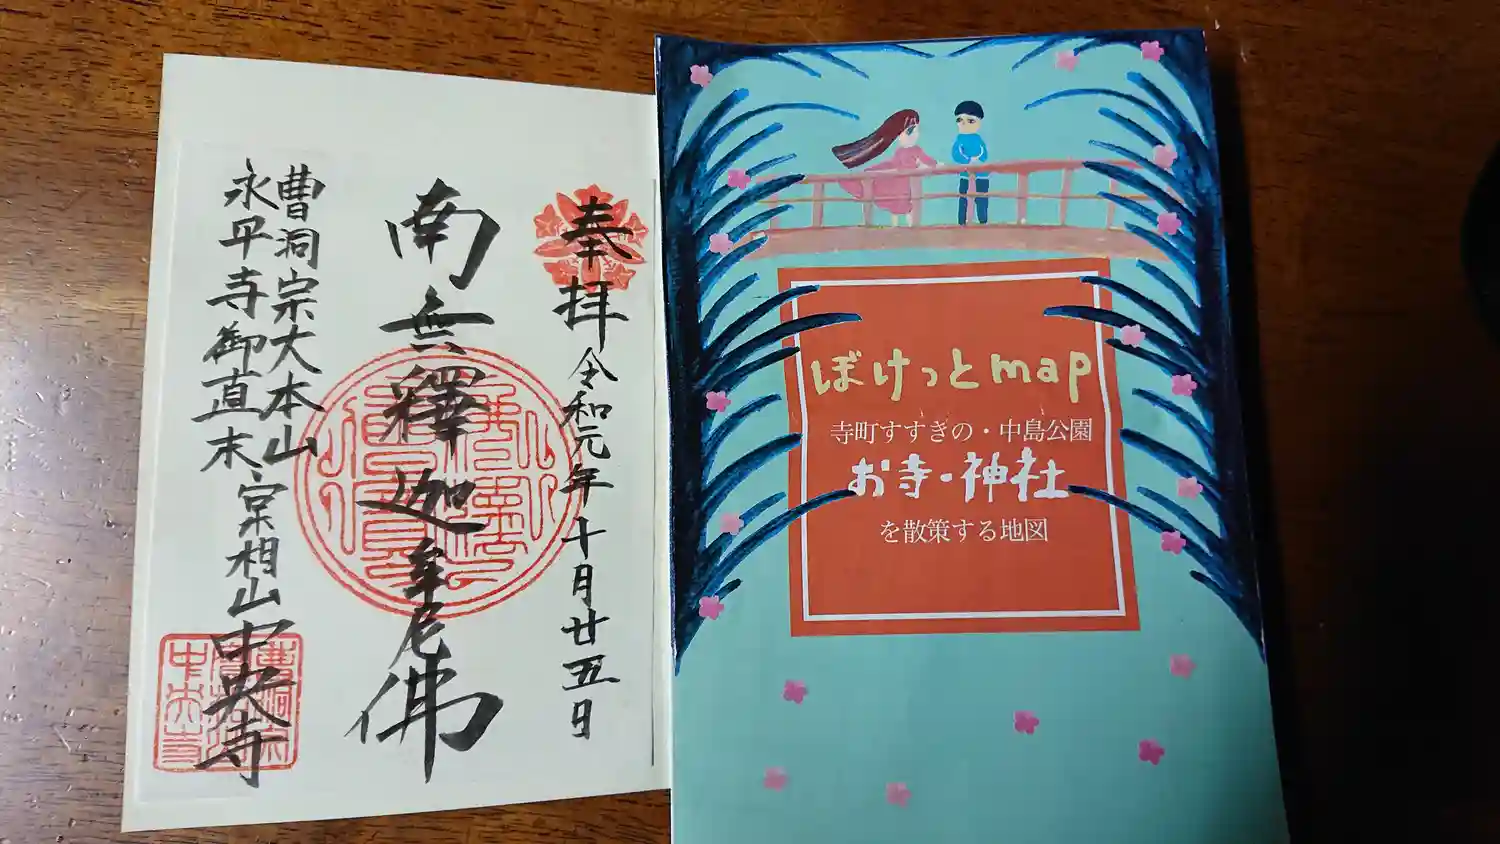 奉拝
令和元年十月廿五日
南無釋迦牟尼佛
曹洞宗大本山
永平寺御直末
宗相山
中央寺
ぽけっとmap
寺町すすぎの・中島公園
お寺・神社
を散策する地図